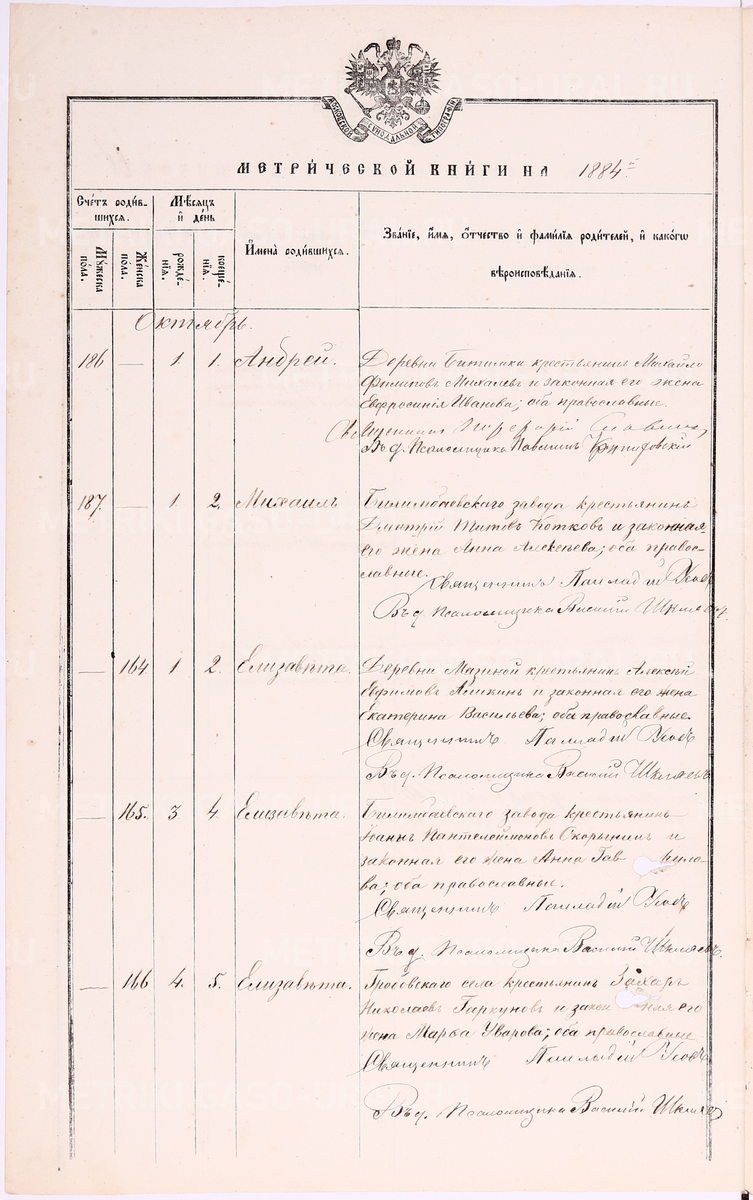 МОСКОВСКОЙ СѴНОДАЛЬНОЙ ТИПОГРАФІИ
МЕТРИ́ЧЕСКОЙ КНИ́ГИ НА 1884 г.
Сче́тъ роди́в-
шихся.
Мѣ́сяцъ
и҆ де́нь
Мꙋ́жеска
по́ла.
Же́нска
по́ла.
рожде́-
нїѧ.
креще́-
нїѧ.
И҆мена̀ роди́вшихся.
Зва́нїе, и҆́мѧ, ѻ҆́тчество и҆ фами́лїѧ роди́телей, и҆ како́гѡ
вѣроисповѣ́данїѧ.
Октябрь.
186 — 1 1. Андрей. Деревни Битимки крестьянинъ Михаило
Филиповъ Михалевъ и законная его жена
Евфросинія Иванова; оба православные.
Священникъ Григорій Славнинъ
Въ д. Псаломщика Павлинъ
187. — 1 2. Михаилъ Билимбаевскаго завода крестьянинъ
Дмитрій Титовъ Котковъ и законная
его жена Анна Алексѣева; оба право-
славные.
Священникъ Палладій
Въ д. Псаломщика Василій Шкляевъ.
— 164 1 2. Елизавѣта. Деревни Мазиной крестьянинъ Алексѣй
Ефимовъ и законная его жена
Екатерина Васильева; оба православные.
Священникъ Палладій
Въ д. Псаломщика Василій Шкляевъ
— 165. 3 4. Елизавѣта. Билимбаевскаго завода крестьянинъ
Іоаннъ Пантелеймоновъ Скорынинъ и
законная его жена Анна Гав рило-
ва; оба православные.
Священникъ Палладій
Въ д. Псаломщика Василій Шкляевъ.
— 166 4. 5. Елизавѣта. Гробовскаго села крестьянинъ Захаръ
Николаевъ Гаркуновъ и закон ная его
жена Марѳа Уварова; оба православные
Священникъ Палладій
Въ д. Псаломщика Василій Шкляевъ